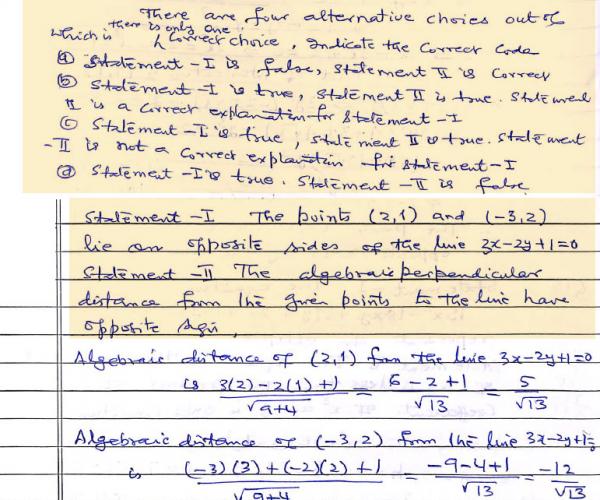 There are four alternative choies out of
which is there is only one correct choice, indicate the correct code
ⓐ Statement-I is false, statement II is correct
ⓑ Statement-I is true, statement II is true. Statement
II is a correct explanation for statement-I
ⓒ Statement-I is true, statement II is true. Statement
-II is not a correct explanation for statement-I
ⓓ Statement-I is true. Statement-II is false
Statement-I The points (2,1) and (-3,2)
lie on opposite sides of the line 3x-2y+1=0
Statement-II The algebraic perpendicular
distance from the given points to the line have
opposite sign,
Algebraic distance of (2,1) from the line 3x-2y+1=0
is 3(2)-2(1)+1/√9+4 = 6-2+1/√13 = 5/√13
Algebraic distance of (-3,2) from the line 3x-2y+1=0
is (-3)(3)+(-2)(2)+1/√9+4 = -9-4+1/√13 = -12/√13